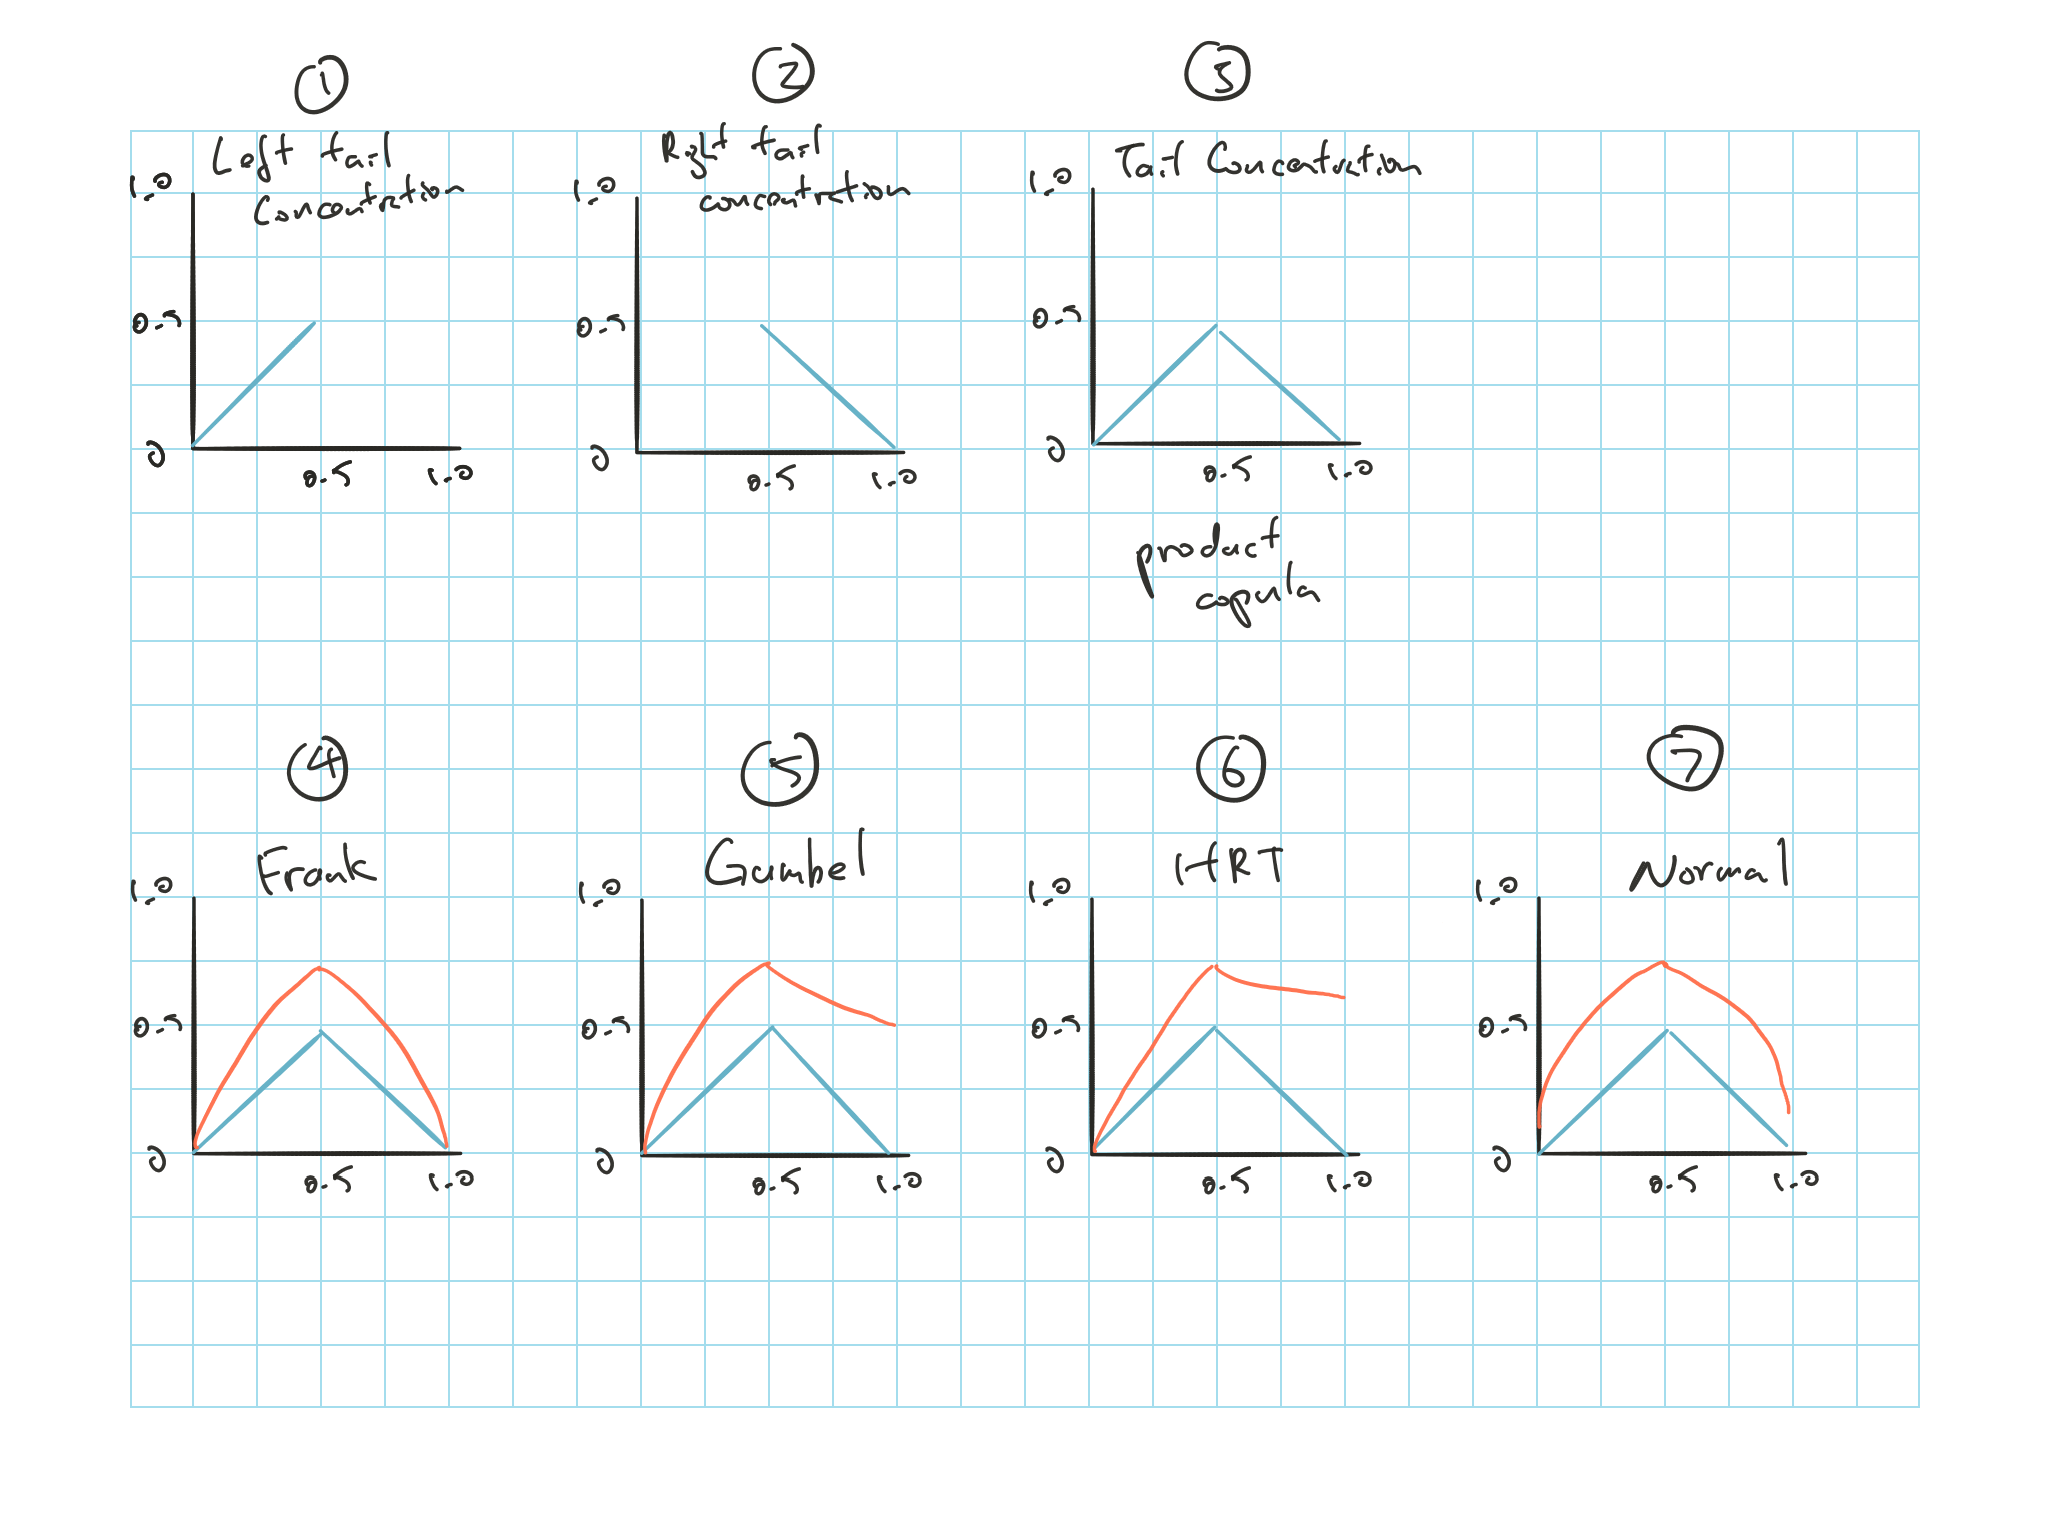 ①
Left tail
concentration
1.0
0.5
0
0.5
1.0
②
Right tail
concentration
1.0
0.5
0
0.5
1.0
③
Tail Concentration
1.0
0.5
0
0.5
1.0
product
copula
④
Frank
1.0
0.5
0
0.5
1.0
⑤
Gumbel
1.0
0.5
0
0.5
1.0
⑥
HRT
1.0
0.5
0
0.5
1.0
⑦
Normal
1.0
0.5
0
0.5
1.0